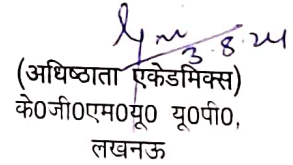 3.8.24
(अधिष्ठाता एकेडमिक्स)
के0जी0एम0यू0 यू0पी0,
लखनऊ